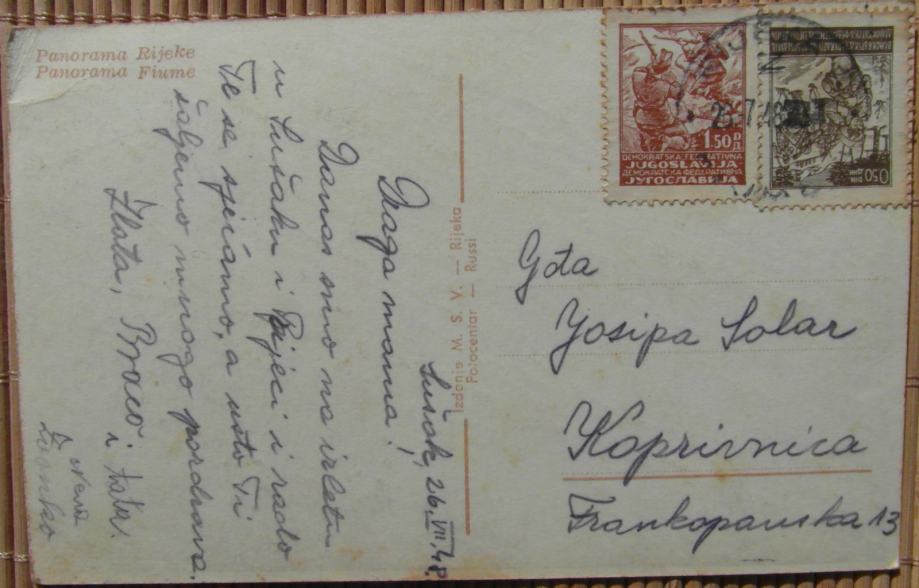 Panorama Rijeke
Panorama Fiume
Sušak, 26.VII.48.
Draga mama!
Danas smo na izletu
u Sušaku i Rijeci i rado
Te se sjećamo, a usto Ti
šaljemo mnogo pozdrava.
Zlata, Braco i
Izdanje M. S. V. — Rijeka
Fotocentar — Russi
1.50 D
Д
DEMOKRATSKA FEDERATIVNA
JUGOSLAVIJA
ДЕМОКРАТСКА ФЕДЕРАТИВНА
ЈУГОСЛАВИЈА
0.50
DIN
ДИН
Gđa
Josipa Solar
Koprivnica
Frankopanska 13